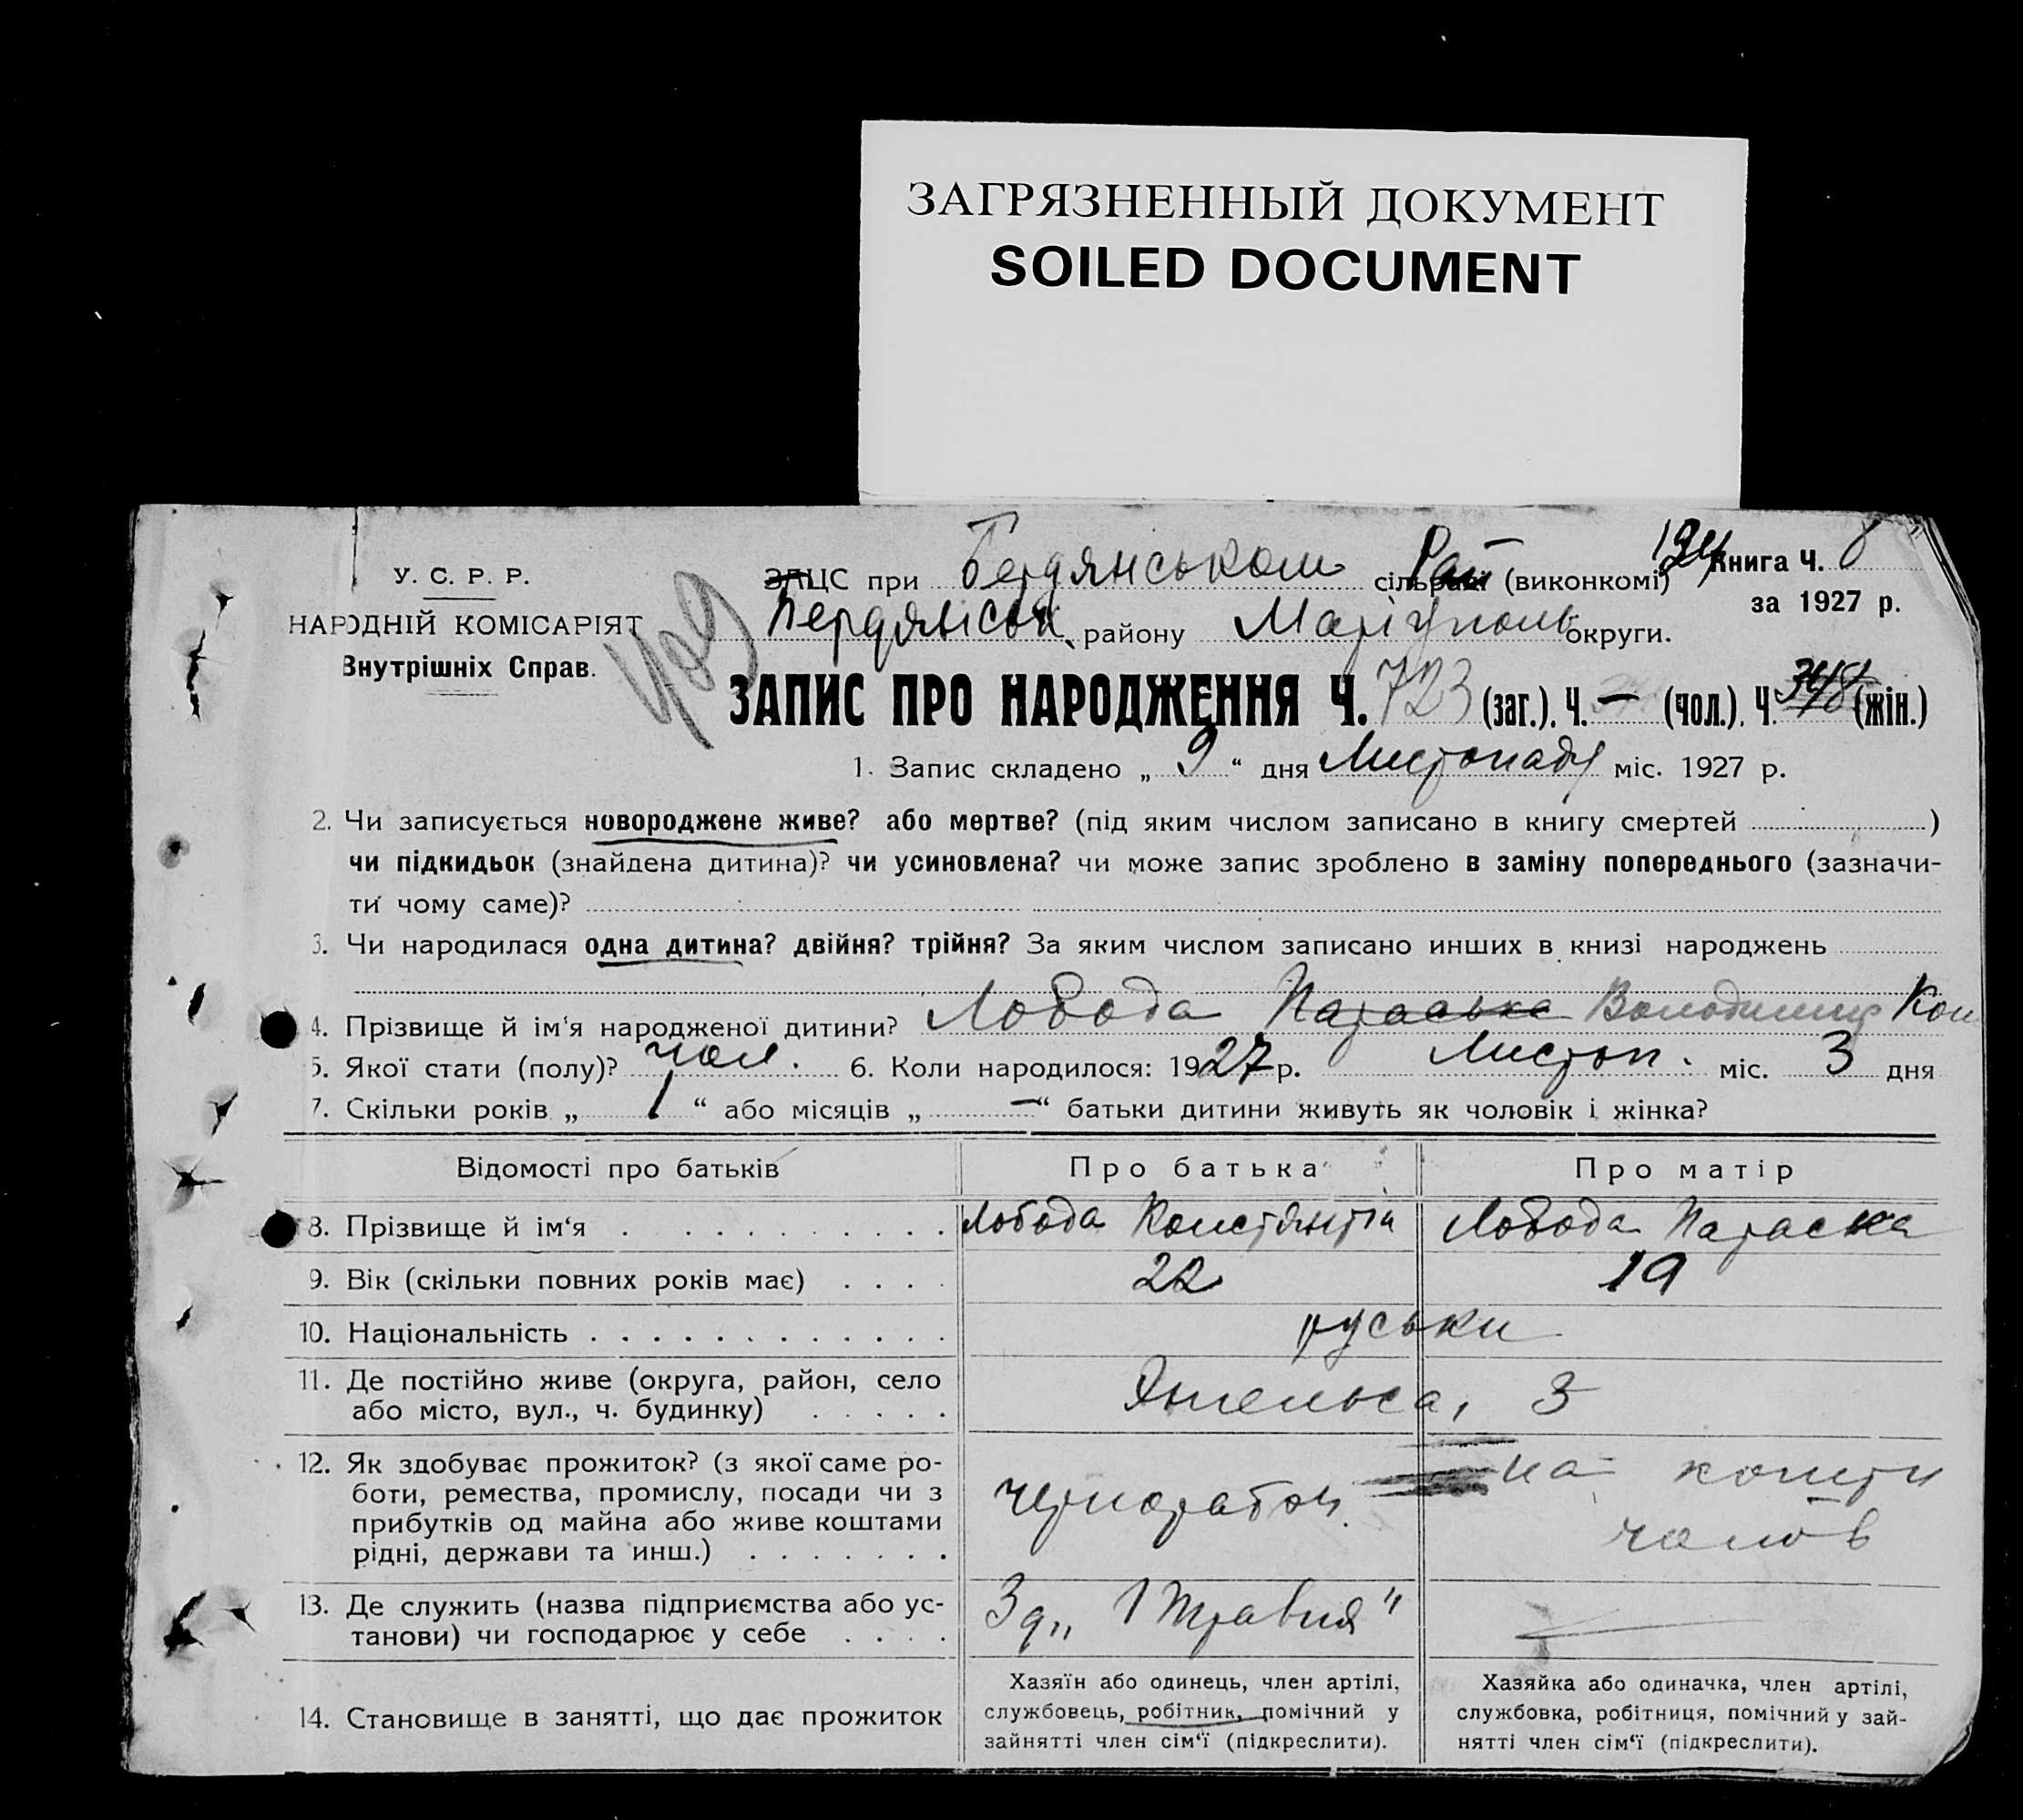 ЗАГРЯЗНЕННЫЙ ДОКУМЕНТ
SOILED DOCUMENT
У. С. Р. Р.
НАРОДНІЙ КОМІСАРІЯТ
Внутрішніх Справ.
409
ЗАЦС при Бердянськом Рай сільраді (виконкомі)
Книга Ч. 8
Бердянськ. району Маріуполь округи.
за 1927 р.
ЗАПИС ПРО НАРОДЖЕННЯ Ч. 723 (заг.). Ч. — (чол.). Ч. 348 (жін.)
1. Запис складено „ 9 “ дня Листопаду міс. 1927 р.
2. Чи записується новороджене живе? або мертве? (під яким числом записано в книгу смертей )
чи підкидьок (знайдена дитина)? чи усиновлена? чи може запис зроблено в заміну попереднього (зазначи-
ти чому саме)?
3. Чи народилася одна дитина? двійня? трійня? За яким числом записано инших в книзі народжень
4. Прізвище й ім'я народженої дитини? Лобода Параська Володимир Кон
5. Якої стати (полу)? чол. 6. Коли народилося: 1927 р. Листоп. міс. 3 дня
7. Скільки років „ 1 “ або місяців „ — “ батьки дитини живуть як чоловік і жінка?
Відомості про батьків Про батька Про матір
8. Прізвище й ім‘я Лобода Констянтін Лобода Параска
9. Вік (скільки повних років має) 22 19
10. Національність руськи
11. Де постійно живе (округа, район, село
або місто, вул., ч. будинку)
Энгельса, 3
12. Як здобуває прожиток? (з якої саме ро-
боти, ремества, промислу, посади чи з
прибутків од майна або живе коштами
рідні, держави та инш.)
чернорабоч.
на кошти
чолов
13. Де служить (назва підприємства або ус-
танови) чи господарює у себе
Зд „1 Травня"
14. Становище в занятті, що дає прожиток
Хазяїн або одинець, член артілі,
службовець, робітник, помічний у
зайнятті член сім‘ї (підкреслити).
Хазяйка або одиначка, член артілі,
службовка, робітниця, помічний у зай-
нятті член сім‘ї (підкреслити).